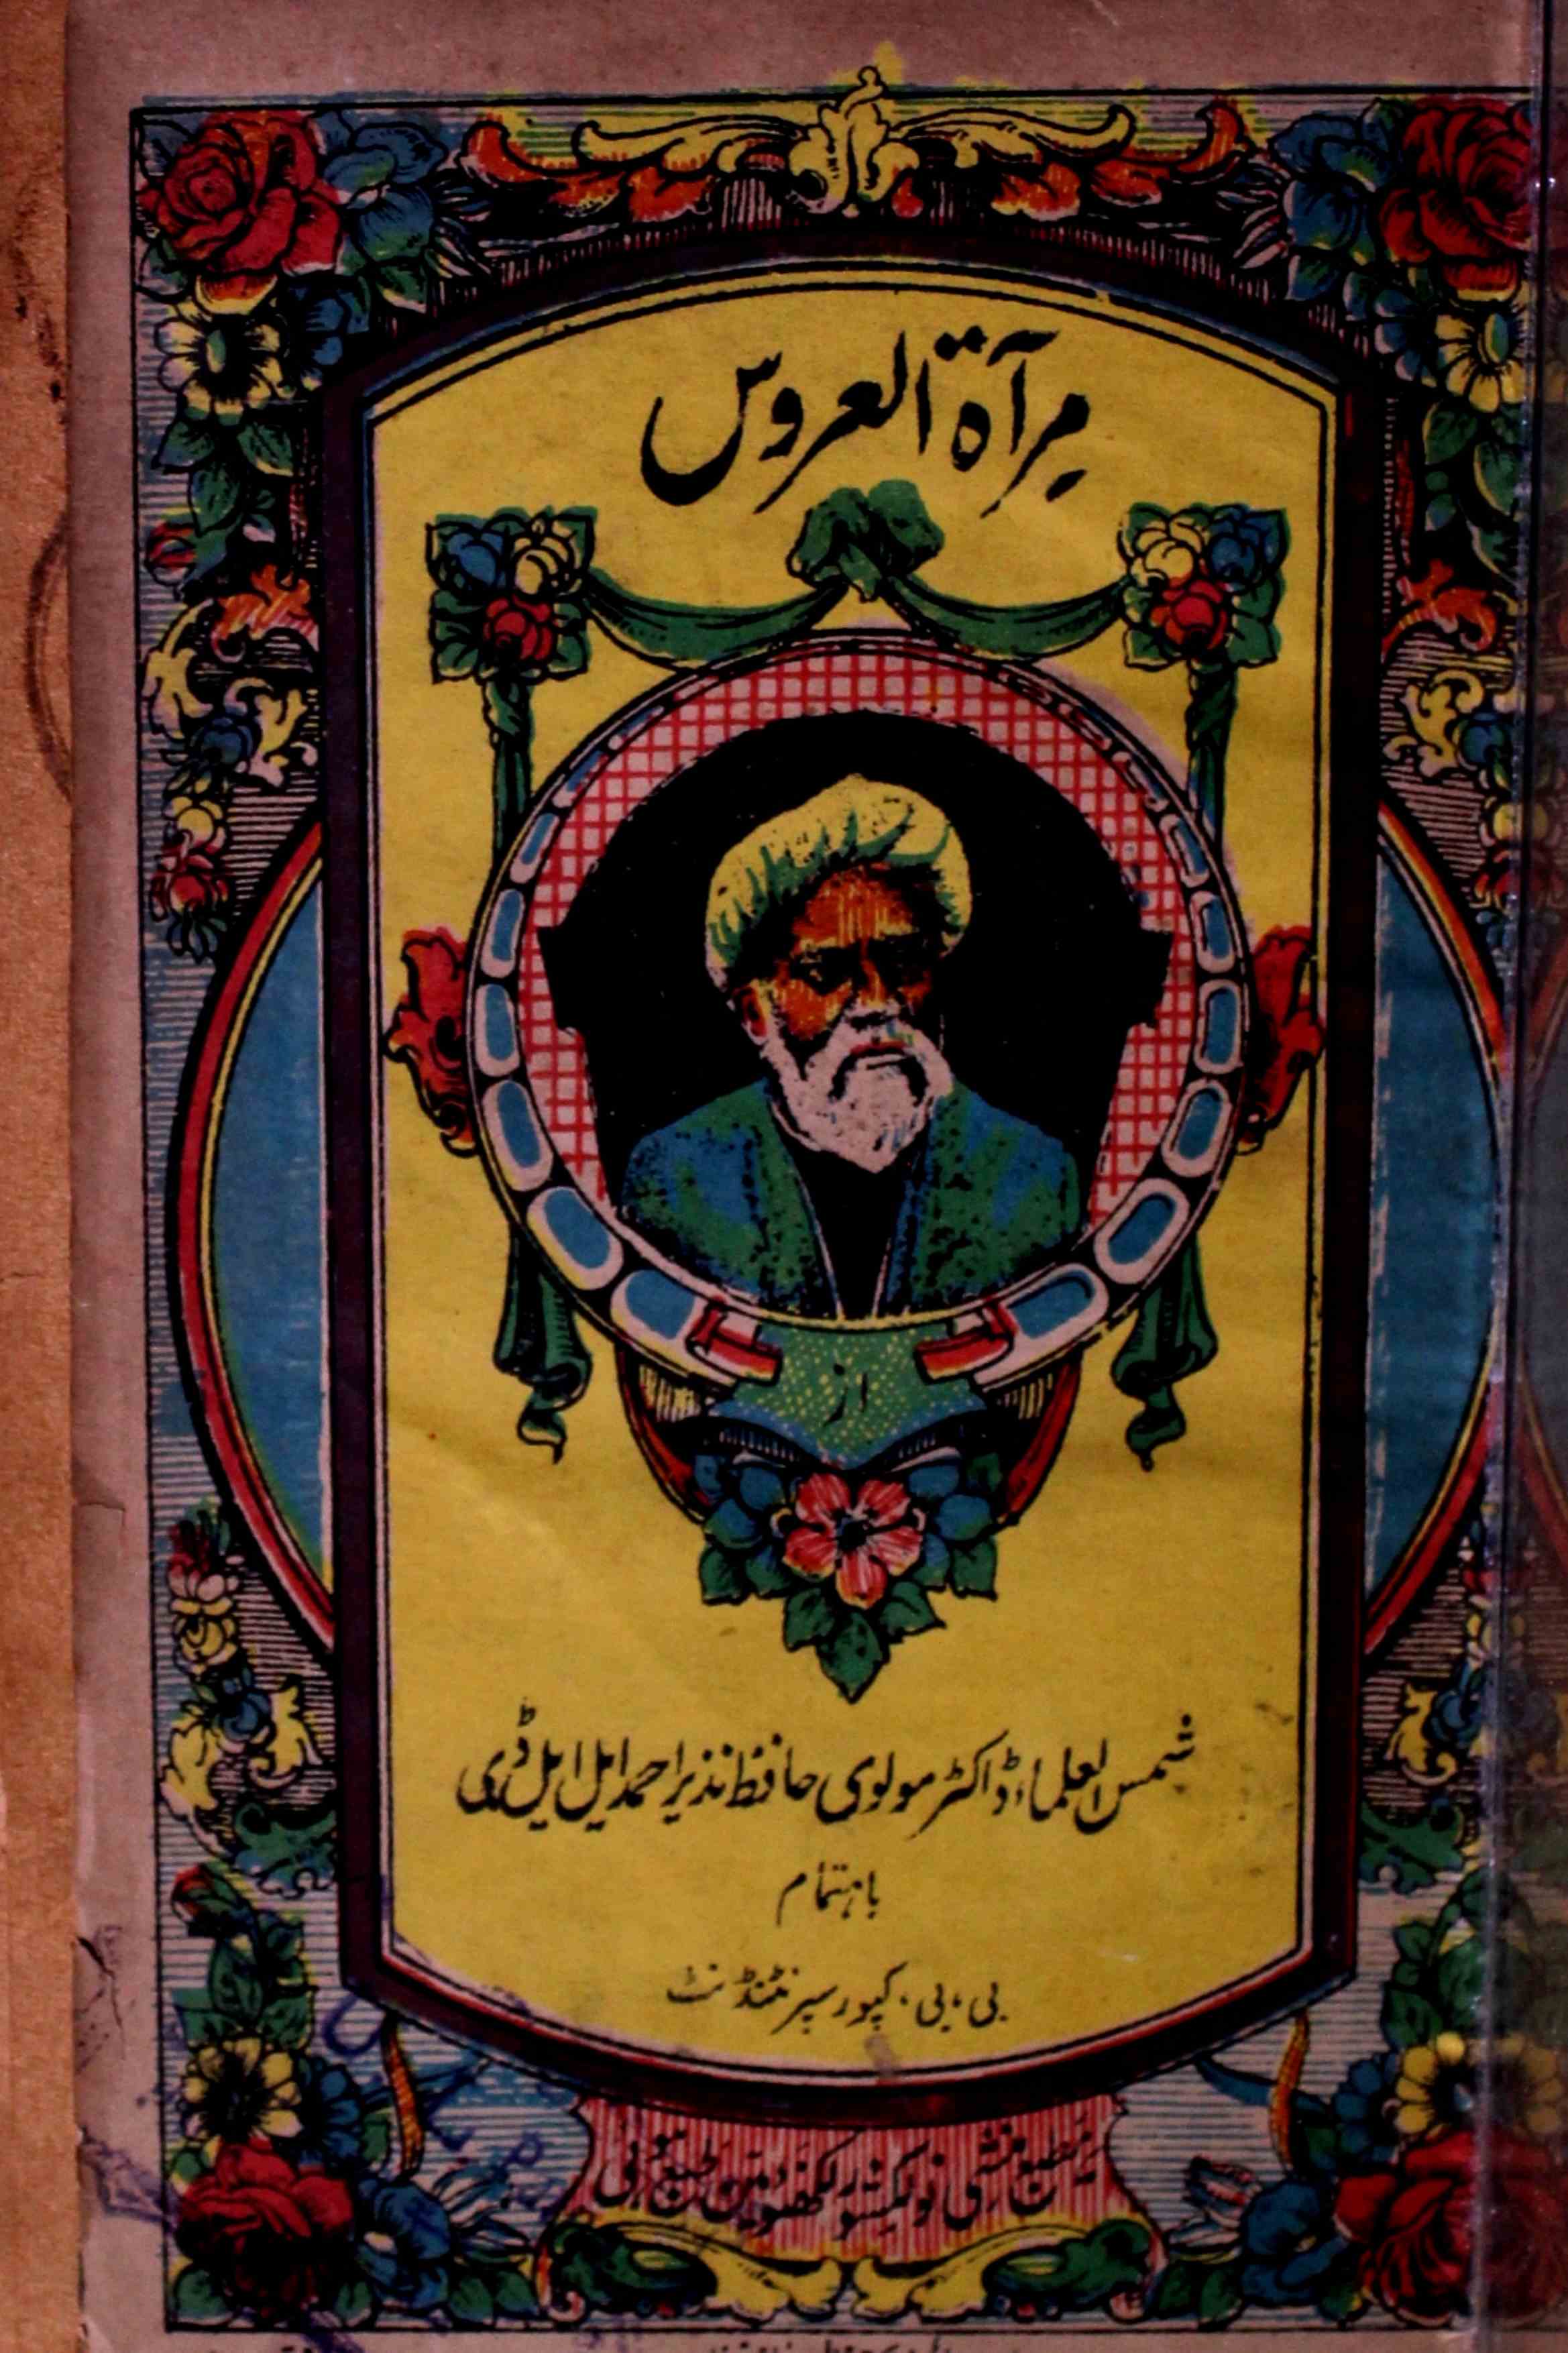 مرآة العروس
از
شمس العلماء ڈاکٹر مولوی حافظ نذیر احمد ایل ایل ڈی
باہتمام
بی، بی، کپور سپرنٹنڈنٹ
مطبع منشی نولکشور لکھنؤ مین طبع ہوئی